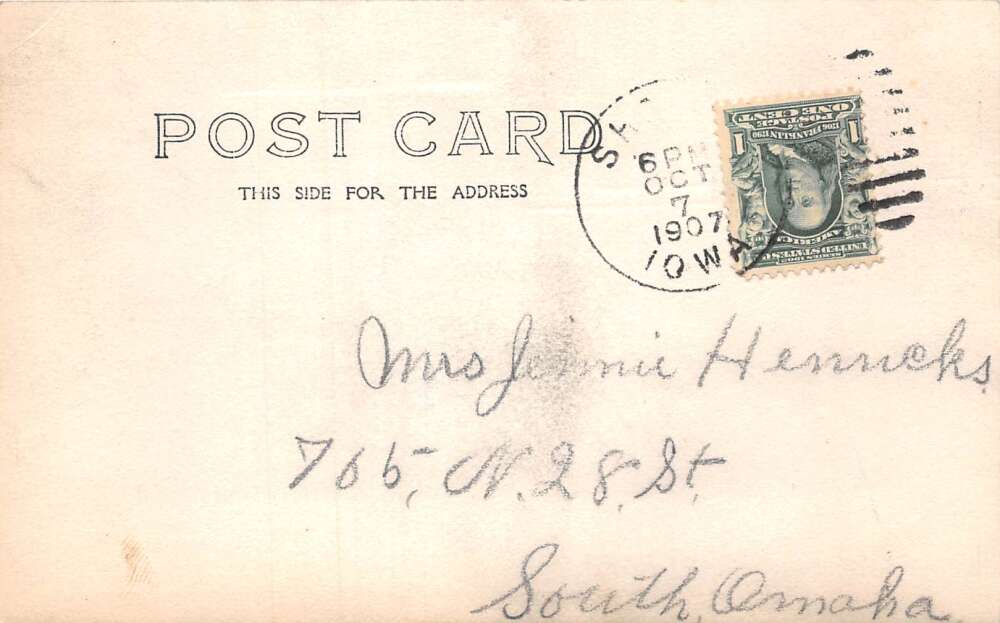 POST CARD
THIS SIDE FOR THE ADDRESS
6 PM
OCT
7
1907
IOWA
POSTAGE ONE CENT
1 1
FRANKLIN 1790
SERIES 1902
UNITED STATES OF
AMERICA
Mrs Jennie Henricks
705, N. 28, St.
South, Omaha